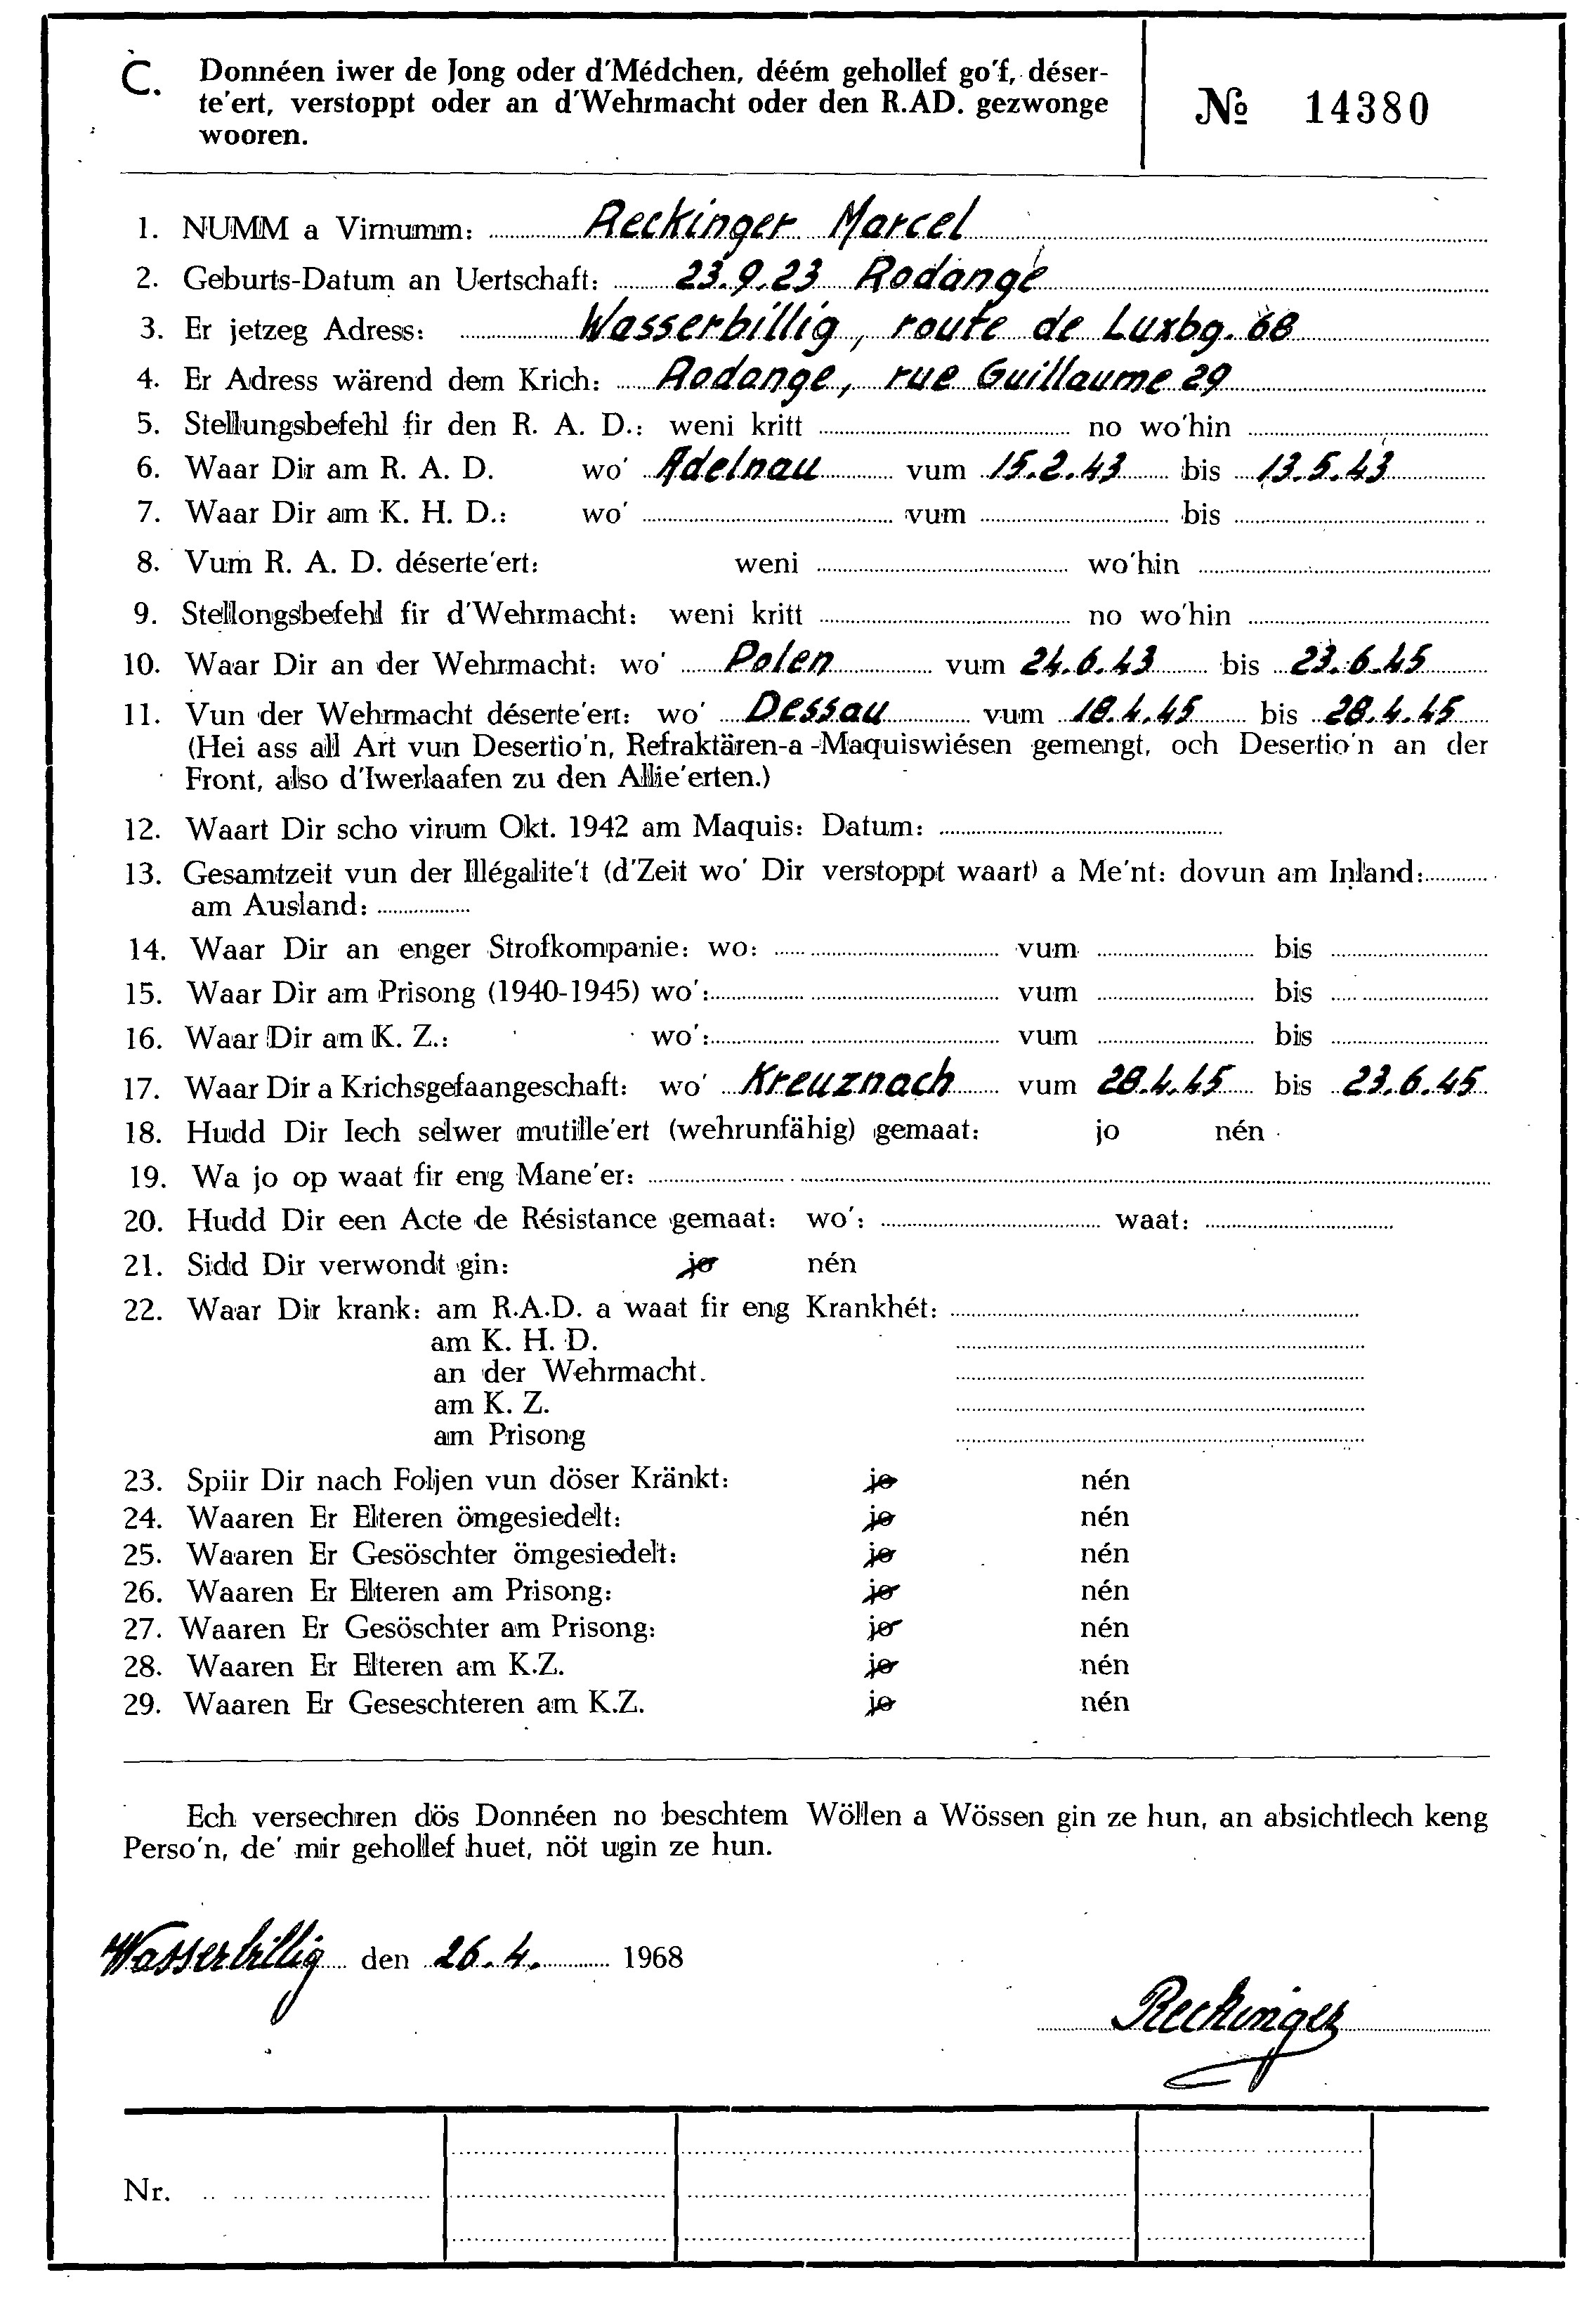 C. Donnéen iwer de Jong oder d'Médchen, déém gehollef go'f, déser-
te'ert, verstoppt oder an d'Wehrmacht oder den R.AD. gezwonge
wooren.
№ 14380
1. NUMM a Virnumm: Reckinger Marcel
2. Geburts-Datum an Uertschaft: 23.9.23 Rodange
3. Er jetzeg Adress: Wasserbillig, route de Luxbg. 68
4. Er Adress wärend dem Krich: Rodange, rue Guillaume 29
5. Stellungsbefehl fir den R. A. D.: weni kritt no wo'hin
6. Waar Dir am R. A. D. wo' Adelnau vum 15.2.43 bis 13.5.43
7. Waar Dir am K. H. D.: wo' vum bis
8. Vum R. A. D. déserte'ert: weni wo'hin
9. Stellongsbefehl fir d'Wehrmacht: weni kritt no wo'hin
10. Waar Dir an der Wehrmacht: wo' Polen vum 24.6.43 bis 23.6.45
11. Vun der Wehrmacht déserte'ert: wo' Dessau vum 18.4.45 bis 28.4.45
(Hei ass all Art vun Desertio'n, Refraktären-a-Maquiswiésen gemengt, och Desertio'n an der
Front, also d'Iwerlaafen zu den Allie'erten.)
12. Waart Dir scho virum Okt. 1942 am Maquis: Datum:
13. Gesamtzeit vun der Illégalite't (d'Zeit wo' Dir verstoppt waart) a Me'nt: dovun am Inland:
am Ausland:
14. Waar Dir an enger Strofkompanie: wo: vum bis
15. Waar Dir am Prisong (1940-1945) wo': vum bis
16. Waar Dir am K. Z.: wo': vum bis
17. Waar Dir a Krichsgefaangeschaft: wo' Kreuznach vum 28.4.45 bis 23.6.45
18. Hudd Dir Iech selwer mutille'ert (wehrunfähig) gemaat: jo nén
19. Wa jo op waat fir eng Mane'er:
20. Hudd Dir een Acte de Résistance gemaat: wo': waat:
21. Sidd Dir verwondt gin: jo nén
22. Waar Dir krank: am R.A.D. a waat fir eng Krankhét:
am K. H. D.
an der Wehrmacht.
am K. Z.
am Prisong
23. Spiir Dir nach Foljen vun döser Kränkt: jo nén
24. Waaren Er Elteren ömgesiedelt: jo nén
25. Waaren Er Gesöschter ömgesiedelt: jo nén
26. Waaren Er Elteren am Prisong: jo nén
27. Waaren Er Gesöschter am Prisong: jo nén
28. Waaren Er Elteren am K.Z. jo nén
29. Waaren Er Geseschteren am K.Z. jo nén
Ech versechren dös Donnéen no beschtem Wöllen a Wössen gin ze hun, an absichtlech keng
Perso'n, de' mir gehollef huet, nöt ugin ze hun.
Wasserbillig den 26.4. 1968
Reckinger
Nr.